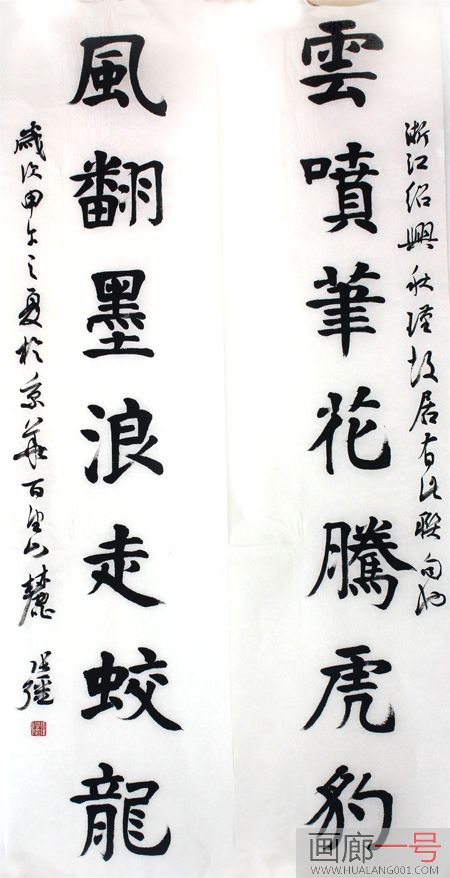 浙江绍興秋瑾故居有此聯句也
雲噴筆花騰虎豹
風翻墨浪走蛟龍
歲次甲午之夏於京華百望山麓
画廊一号
WWW.HUALANG001.COM